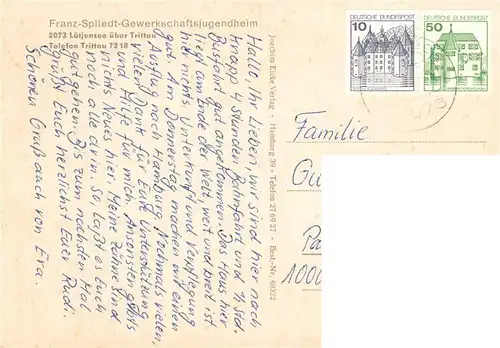 Franz-Spliedt-Gewerkschaftsjugendheim
2073 Lütjensee über Trittau
Telefon Trittau 7218
Hallo, Ihr Lieben, wir sind hier nach
knapp 4 Stunden Bahnfahrt und ½ Std.
Busfahrt gut angekommen. Das Haus hier
liegt am Ende der Welt, weit und breit ist
hier nichts. Unterkunft und Verpflegung
gut. Am Donnerstag machen wir einen
Ausflug nach Hamburg. Nochmals vielen,
vielen Dank für Eure Unterstützung
und Hilfe für mich. Ansonsten gibt's
nichts Neues hier. Meine Zähne sind
noch alle drin. So, laßt es Euch
gut gehen. Bis zum nächsten Mal
grüßt Euch herzlichst Euer Rudi.
Schönen Gruß auch von Eva.
Joachim Eicke Verlag - Hamburg 39 - Telefon 27 69 27 - Best.-Nr. 60322
DEUTSCHE BUNDESPOST
10
DEUTSCHE BUNDESPOST
50
Familie
Gu
Pa
1000